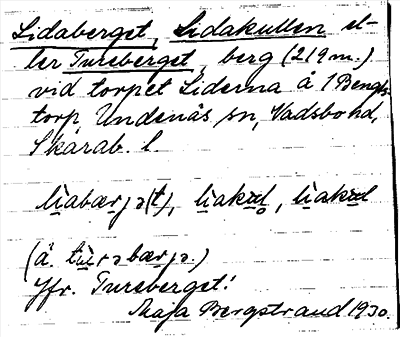 Lidaberget, Lidakullen el-
ler Tureberget, berg (219 m.)
vid torpet Liderna å 1 Bengts
torp Undenås sn, Vadsbo hd,
Skarab. l.
(ä. tùrəbærjə.)
Jfr. Tureberget!
Maja Bergstrand 1930.